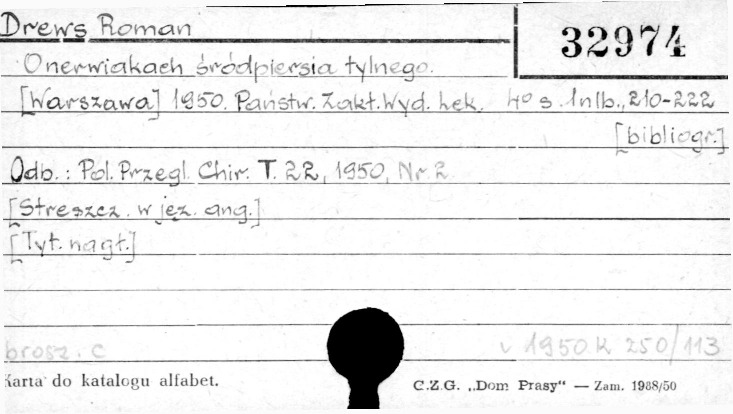 Drews Roman
32974
O nerwiakach śródpiersia tylnego.
[Warszawa] 1950. Państw. Zakł. Wyd. Lek. 4° s. 1nlb., 210-222
[bibliogr.]
Odb.: Pol. Przegl. Chir. T. 22, 1950, Nr. 2
[Streszcz. w jęz. ang.]
[Tyt. nagł.]
brosz. c
v 1950 K 250/113
Karta do katalogu alfabet.
C.Z.G. „Dom Prasy“ — Zam. 1988/50